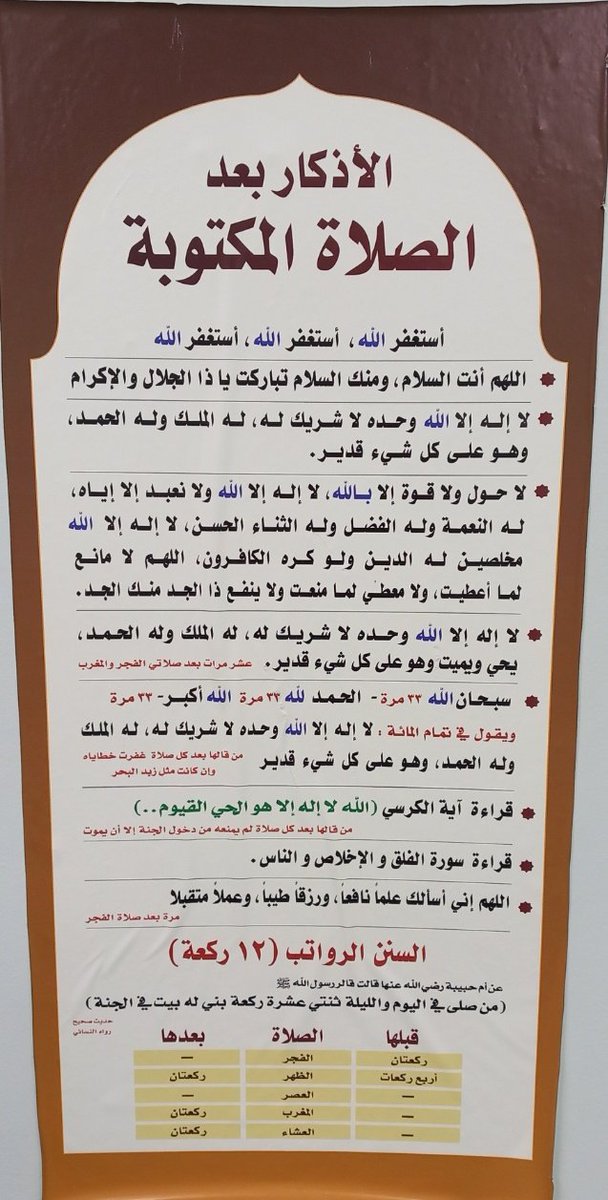 الأذكار بعد
الصلاة المكتوبة
أستغفر الله، أستغفر الله، أستغفر الله
اللهم أنت السلام، ومنك السلام تباركت يا ذا الجلال والإكرام
لا إله إلا الله وحده لا شريك له، له الملك وله الحمد،
وهو على كل شيء قدير.
لا حول ولا قوة إلا بالله، لا إله إلا الله ولا نعبد إلا إياه،
له النعمة وله الفضل وله الثناء الحسن، لا إله إلا الله
مخلصين له الدين ولو كره الكافرون، اللهم لا مانع
لما أعطيت، ولا معطي لما منعت ولا ينفع ذا الجد منك الجد.
لا إله إلا الله وحده لا شريك له، له الملك وله الحمد،
يحي ويميت وهو على كل شيء قدير. عشر مرات بعد صلاتي الفجر والمغرب
سبحان الله ٣٣ مرة - الحمد لله ٣٣ مرة الله أكبر - ٣٣ مرة
ويقول في تمام المائة : لا إله إلا الله وحده لا شريك له، له الملك
وله الحمد، وهو على كل شيء قدير من قالها بعد كل صلاة غفرت خطاياه
وإن كانت مثل زبد البحر
قراءة آية الكرسي (الله لا إله إلا هو الحي القيوم..)
من قالها بعد كل صلاة لم يمنعه من دخول الجنة إلا أن يموت
قراءة سورة الفلق و الإخلاص و الناس.
اللهم إني أسألك علماً نافعاً، ورزقاً طيباً، وعملاً متقبلا
مرة بعد صلاة الفجر
السنن الرواتب (١٢ ركعة)
عن أم حبيبة رضي الله عنها قالت قال رسول الله ﷺ
(من صلى في اليوم والليلة ثنتي عشرة ركعة بني له بيت في الجنة)
حديث صحيح
رواه النسائي
قبلها الصلاة بعدها
ركعتان الفجر —
أربع ركعات الظهر ركعتان
— العصر —
— المغرب ركعتان
— العشاء ركعتان